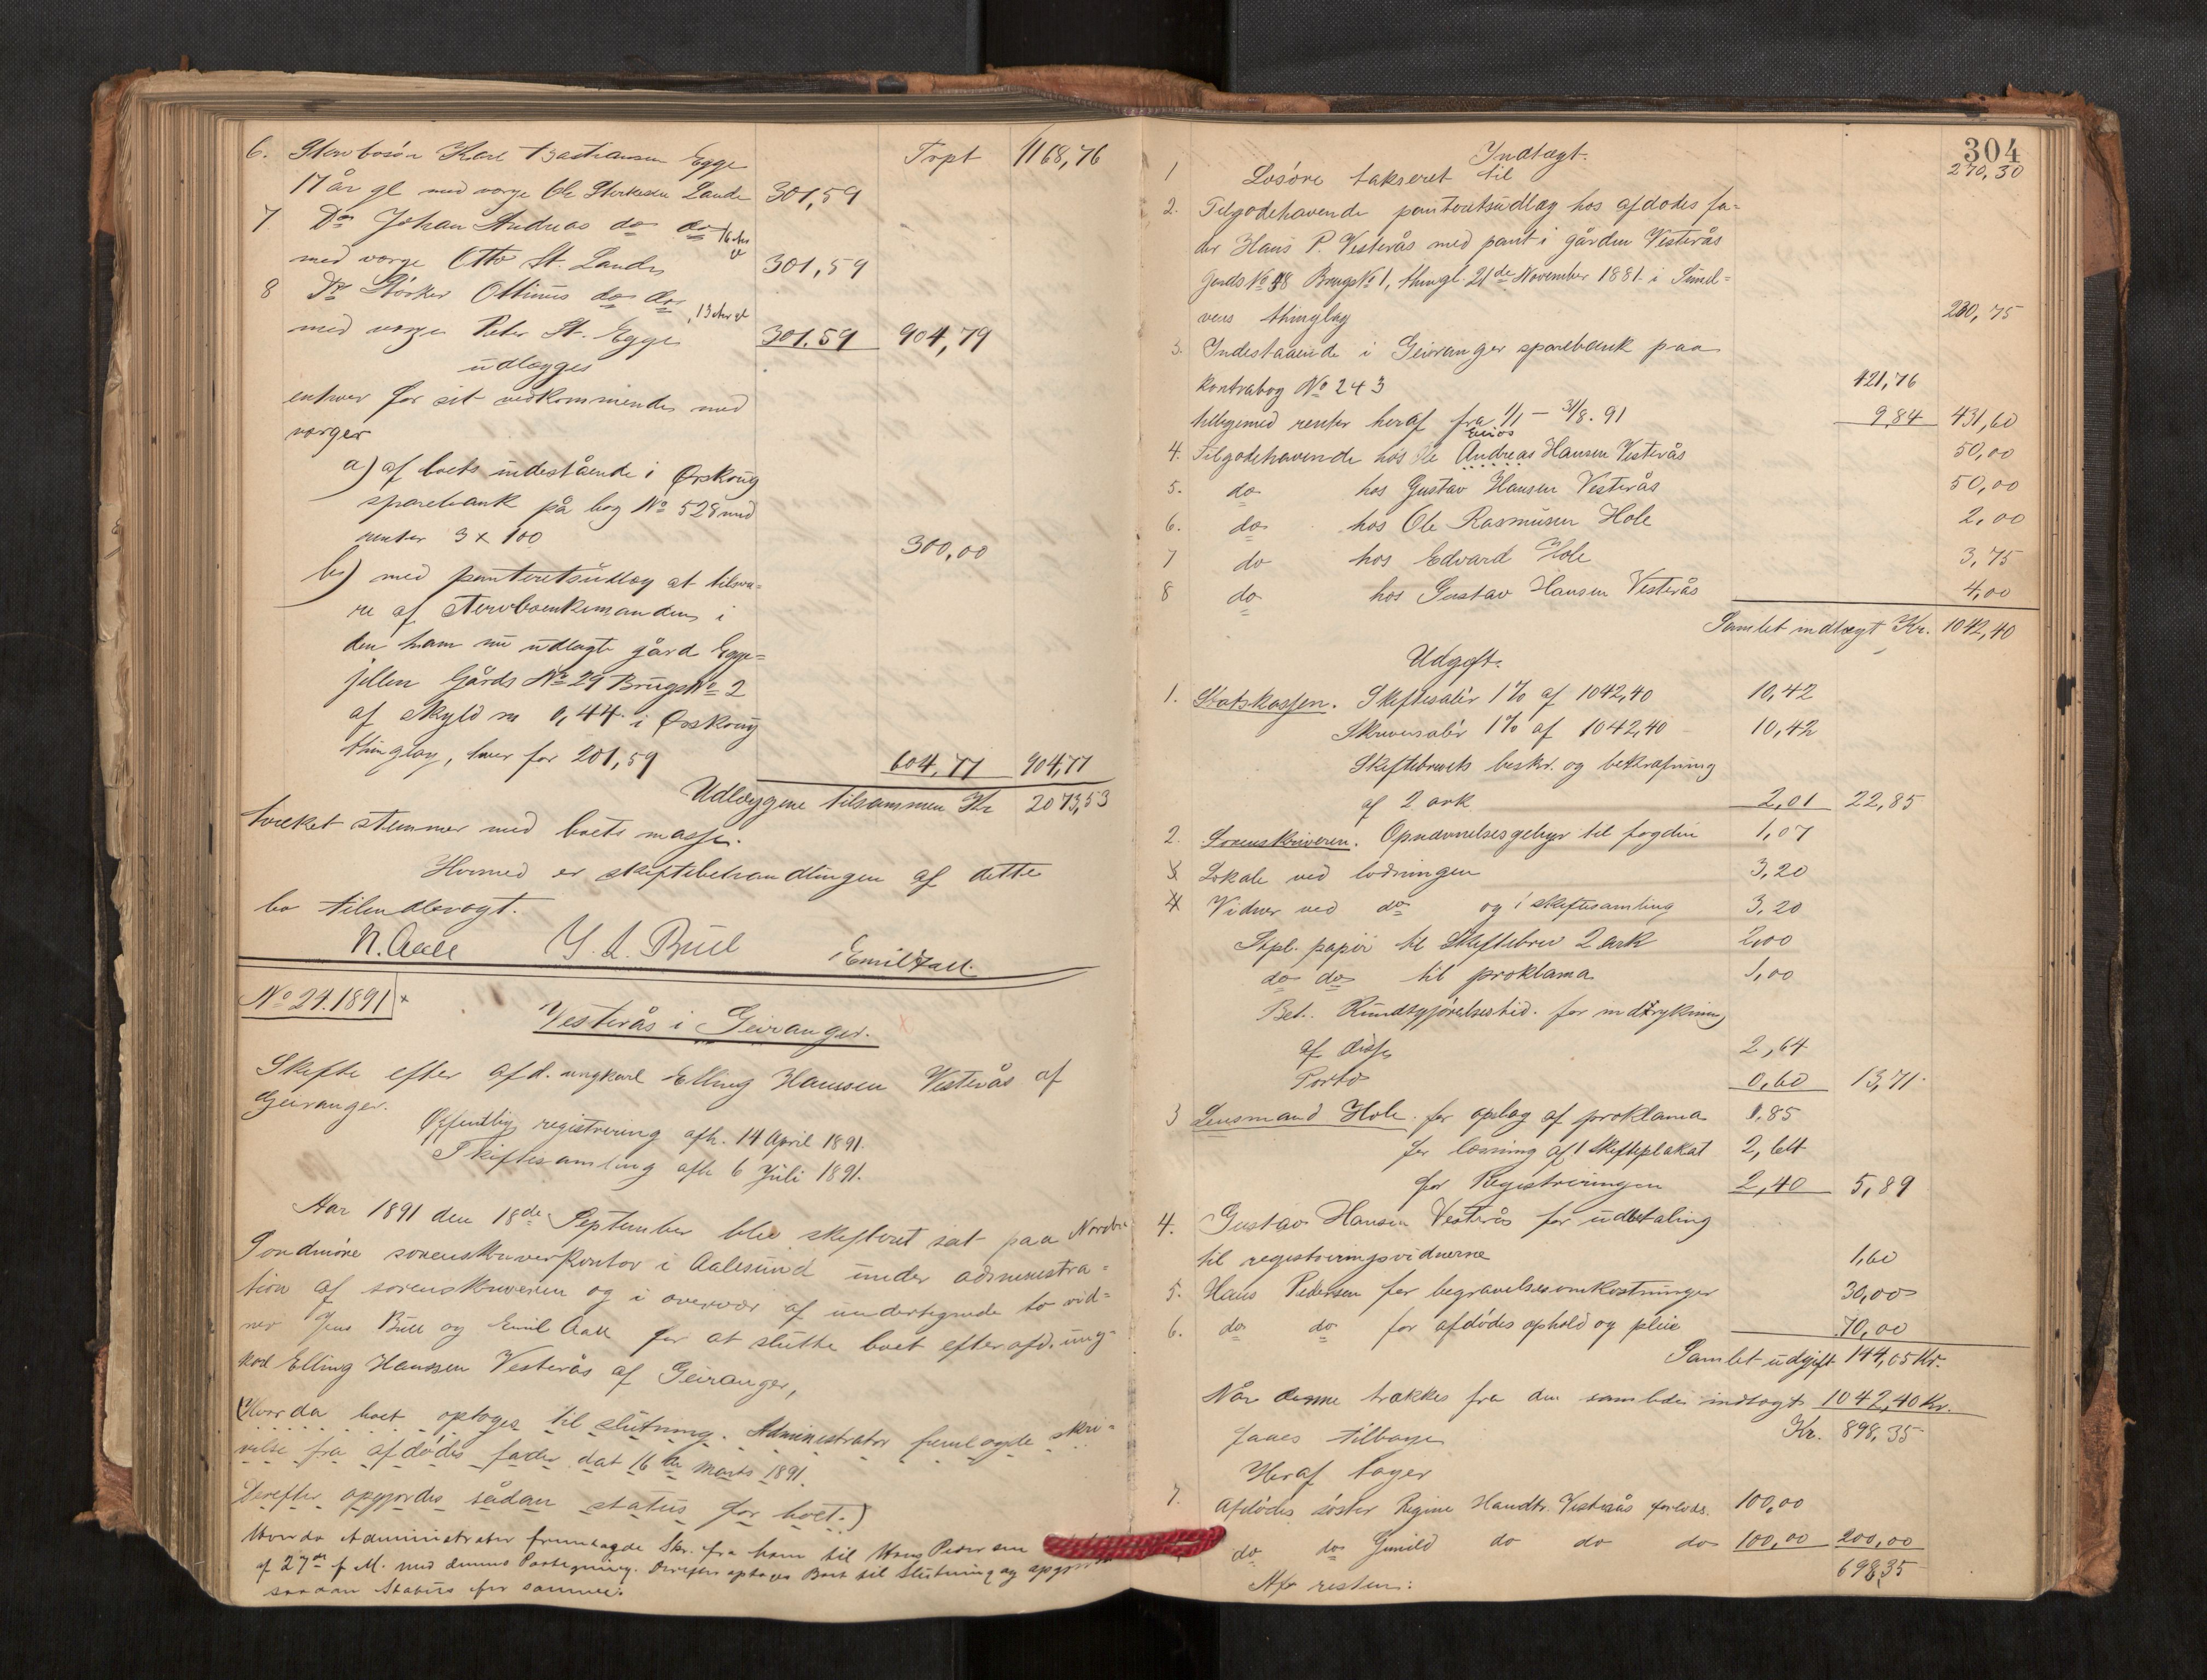 6. Stervbosøn Karl Bastiansen Egge Trpt 1168,76
17 år gl med værge Ole Størkersen Lande 301,59
7 Do Johan Andreas do do 16 år
med værge Otto St. Lande 301,59
8 Do Størker Ottinus do do, 13 år gl
med værge Peter St. Egge 301.59 904,79
udlægges
enhver for sit vedkommende med
værger
a) af boets indestående i Ørskoug
sparebank på bog No 528 med
renter 3 x 100 300,00
b) med panteretsudlæg at tilsva=
re af stervboenkemanden i
den ham nu udlagte gård Egge=
jellen Gårds No 29 Brugs No 2
af skyld m 0,44 i Ørskoug
thinglag, hver for 201,59 604,77 904,77
Udlæggene tilsammen Kr 2073,53
hvilket stemmer med boets masse.
Hermed er skiftebehandlingen af dette
bo tilendebragt.
N. Aall J. A. Bull Emil Aall.
No 24. 1891 x
Vesterås i Geiranger. x
Skifte efter afd. ungkarl Elling Hanssen Vesterås af
Geiranger.
Offentlig registrering afh. 14 April 1891.
Skiftesamling afh 6 Juli 1891.
Aar 1891 den 18de September blev skifteret sat paa Nordre
Søndmøre sorenskriverkontor i Aalesund under administra=
tion af sorenskriveren og i overvær af undertegnede to vid=
ner Jens Bull og Emil Aall for at slutte boet efter afd. ung=
karl Elling Hanssen Vesterås af Geiranger,
(Hvorda boet optoges til slutning. Administrator fremlagde skri=
velse fra afdødes fader dat 16de Marts 1891.
Derefter opgjordes sådan status for boet.)
Hvorda Administrator fremlagde Skr. fra ham til Hans Pedersen
af 27de f M. med dennes Paategning. Derefter optoges Boet til Slutning og opgjordes
saadan Status for samme:
304
Indtægt.
1 Løsøre takseret til 270,30
2. Tilgodehavende panteretsudlæg hos afdødes fa=
der Hans P. Vesterås med pant i gården Vesterås
Gards No 48 Brugs No 1, thingl 21de November 1881 i Sunel=
vens thinglag 230,75
3. Indestaaende i Geiranger sparebank paa
kontrabog No 243 421,76
tilligemed renter heraf fra 1/1 – 31/8. 91 9,84 431,60
Enios
4. Tilgodehavende hos Andreas Hansen Vesterås 50,00
5. do hos Gustav Hansen Vesterås 50,00
6. do hos Ole Rasmusen Hole 2,00
7 do hos Edvard Hole 3,75
8 do hos Gustav Hansen Vesterås 4,00
Samlet indtægt Kr. 1042,40
Udgift.
1. Statskassen. Skiftesalær 1% af 1042,40 10,42
Skriversalær 1% af 1042,40 10,42
Skiftebrevets beskr. og bekræftning
af 2 ark 2,01 22,85
2. Sorenskriveren. Opnævnelsesgebyr til fogden 1,07
3 Lokale ved lodningen 3,20
4 Vidner ved do og i skiftesamling 3,20
Stpl. papir til Skiftebrev 2 ark 2,00
do do til proklama 1,00
Bet. Kundgjørelsestid. for indtrykning
af disse 2,64
Porto 0,60 13,71
3 Lensmand Hole. for oplag af proklama 0.85
for læsning af 1 skifteplakat 2,64
for Registreringen 2,40 5,89
4. Gustav Hansen Vesterås for udbetaling
til registreringsvidnerne 1,60
5. Hans Pedersen for begravelsesomkostninger 30,00
6. do do for afdødes ophold og pleie 70,00
Samlet udgift 144,05 Kr.
Når denne trækkes fra den samlede indtægt 1042,40 Kr.
faaes tilbage Kr. 898,35
Heraf tager
7. afdødes søster Regine Hansdtr. Vesterås forlods. 100,00
do do Gunild do do do 100,00 200,00
698,35
Af resten: